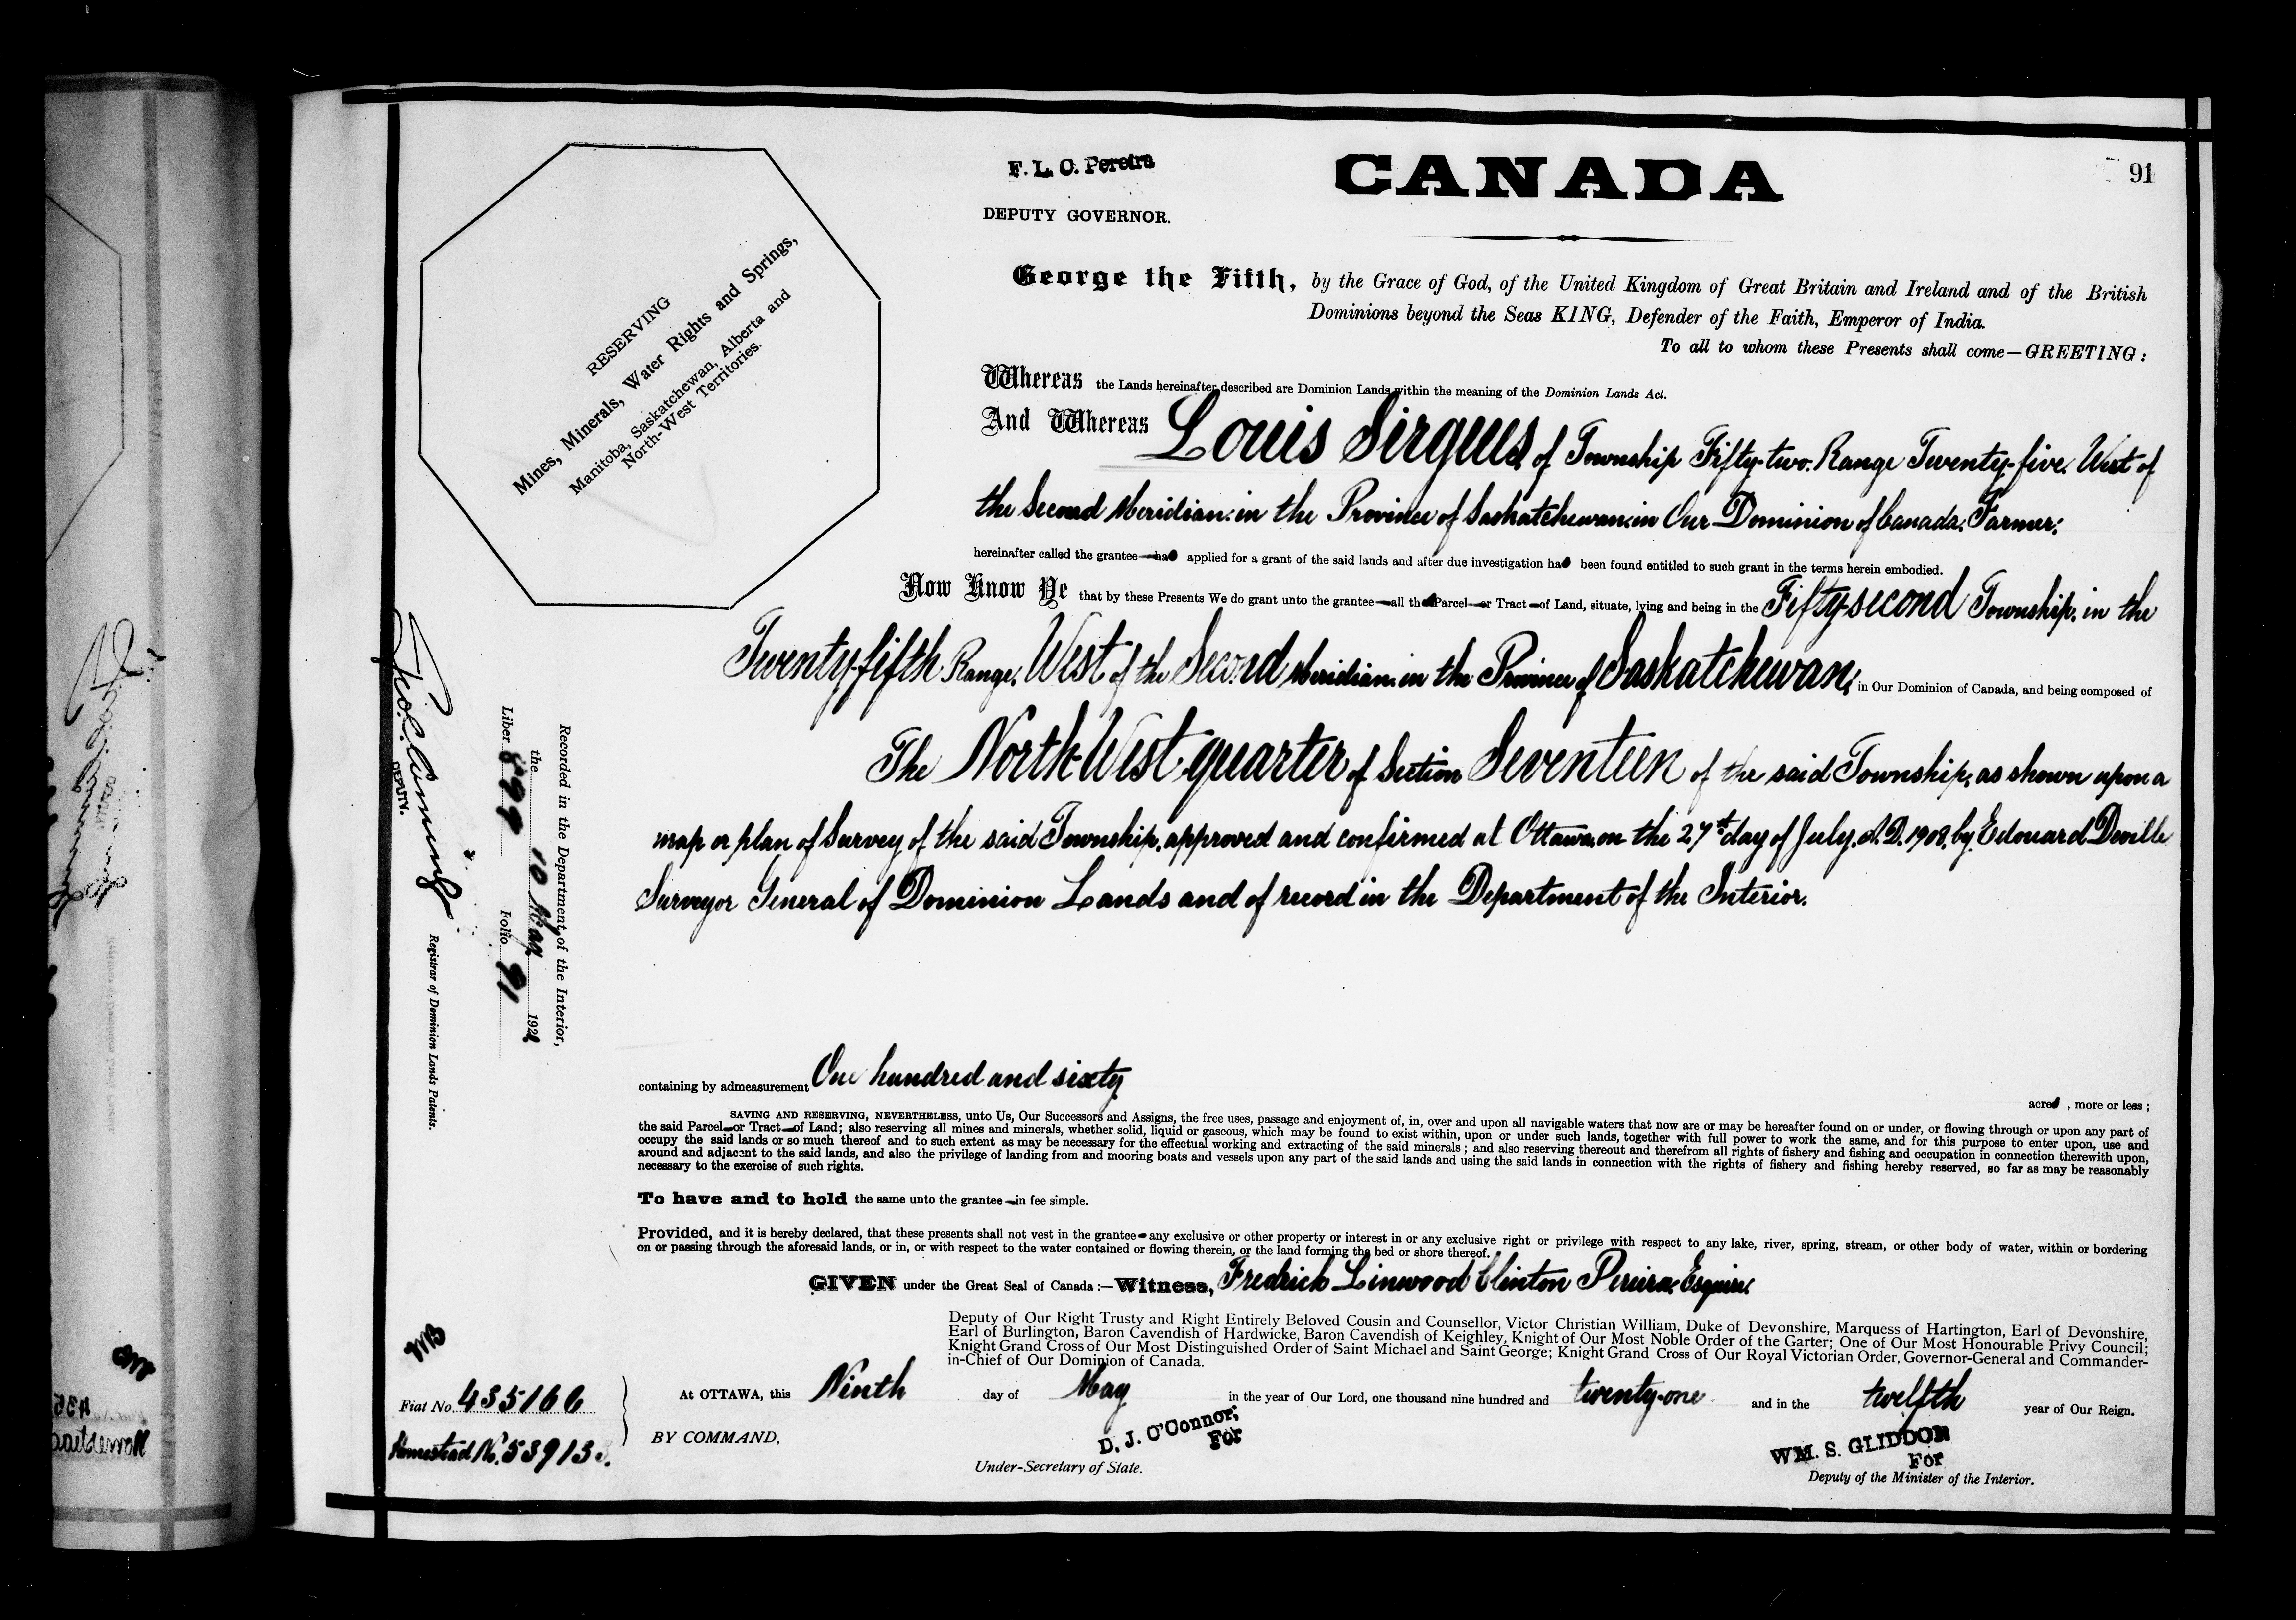 91
F. L. C. Pereira
CANADA
DEPUTY GOVERNOR.
George the Fifth, by the Grace of God, of the United Kingdom of Great Britain and Ireland and of the British
Dominions beyond the Seas KING, Defender of the Faith, Emperor of India.
To all to whom these Presents shall come—GREETING:
RESERVING
Mines, Minerals, Water Rights and Springs,
Manitoba, Saskatchewan, Alberta and
North-West Territories.
Whereas the Lands hereinafter described are Dominion Lands within the meaning of the Dominion Lands Act.
And Whereas Louis of Township Fifty-two. Range Twenty-five. West of
the Second Meridian: in the Province of Saskatchewan: in Our Dominion of Canada: Farmer:
hereinafter called the grantee—has applied for a grant of the said lands and after due investigation has been found entitled to such grant in the terms herein embodied.
Now Know Ye that by these Presents We do grant unto the grantee—all that Parcel—or Tract—of Land, situate, lying and being in the Fifty-second Township. in the
Twenty-fifth Range. West of the Second Meridian. in the Province of Saskatchewan; in Our Dominion of Canada, and being composed of
The North-West quarter of Section Seventeen of the said Township, as shown upon a
map or plan of Survey of the said Township, approved and confirmed at Ottawa, on the 27th day of July. A.D. 1908, by Edouard Deville
Surveyor General of Dominion Lands and of record in the Department of the Interior.
containing by admeasurement One hundred and sixty
acres , more or less ;
SAVING AND RESERVING, NEVERTHELESS, unto Us, Our Successors and Assigns, the free uses, passage and enjoyment of, in, over and upon all navigable waters that now are or may be hereafter found on or under, or flowing through or upon any part of
the said Parcel—or Tract—of Land; also reserving all mines and minerals, whether solid, liquid or gaseous, which may be found to exist within, upon or under such lands, together with full power to work the same, and for this purpose to enter upon, use and
occupy the said lands or so much thereof and to such extent as may be necessary for the effectual working and extracting of the said minerals ; and also reserving thereout and therefrom all rights of fishery and fishing and occupation in connection therewith upon,
around and adjacent to the said lands, and also the privilege of landing from and mooring boats and vessels upon any part of the said lands and using the said lands in connection with the rights of fishery and fishing hereby reserved, so far as may be reasonably
necessary to the exercise of such rights.
To have and to hold the same unto the grantee—in fee simple.
Provided, and it is hereby declared, that these presents shall not vest in the grantee—any exclusive or other property or interest in or any exclusive right or privilege with respect to any lake, river, spring, stream, or other body of water, within or bordering
on or passing through the aforesaid lands, or in, or with respect to the water contained or flowing therein, or the land forming the bed or shore thereof.
GIVEN under the Great Seal of Canada :—Witness, Fredrick Linwood Clinton Pereira: Esquire:
Deputy of Our Right Trusty and Right Entirely Beloved Cousin and Counsellor, Victor Christian William, Duke of Devonshire, Marquess of Hartington, Earl of Devonshire,
Earl of Burlington, Baron Cavendish of Hardwicke, Baron Cavendish of Keighley, Knight of Our Most Noble Order of the Garter; One of Our Most Honourable Privy Council;
Knight Grand Cross of Our Most Distinguished Order of Saint Michael and Saint George; Knight Grand Cross of Our Royal Victorian Order, Governor-General and Commander-
in-Chief of Our Dominion of Canada.
At OTTAWA, this Ninth day of May in the year of Our Lord, one thousand nine hundred and twenty-one and in the twelfth year of Our Reign.
BY COMMAND,
D. J. O'Connor,
For
Under-Secretary of State.
WM. S. GLIDDON
For
Deputy of the Minister of the Interior.
Fiat No. 435166
Homestead No. 53913
Recorded in the Department of the Interior,
the 10 May 1921
Liber 899 Folio 91
DEPUTY.
Registrar of Dominion Lands Patents.